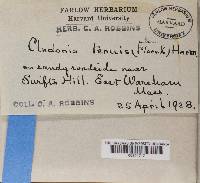 FARLOW HERBARIUM
Harvard University
HERB. C. A. ROBBINS
Cladonia tenuis (Floerk.) Harm.
on sandy roadside near
Swifts Hill. East Wareham
Mass.
COLL. C. A. ROBBINS
25 April 1928.